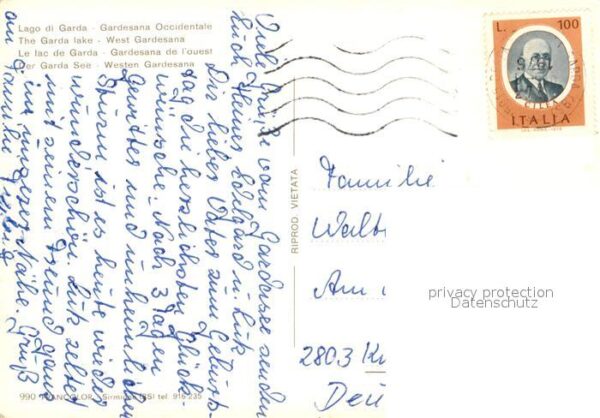 Lago di Garda - Gardesana Occidentale
The Garda lake - West Gardesana
Le lac de Garda - Gardesana de l'ouest
Der Garda See - Westen Gardesana
Viele Grüße vom Gardasee senden
Euch Heinz, Edelgard u. Lutz
Dir lieber Vater zum Geburts-
tag die herzlichsten Glück-
wünsche. Nach 3 Tagen
Gewitter und unheimlichem
Sturm ist es heute wieder
wunderschön. Lutz zeltet
mit seinem Freund ganz
in unserer Nähe. Gruß
an Familie
RIPROD. VIETATA
L. 100
ITALIA
Familie
Walt
Am
2803 K
Deu
privacy protection
Datenschutz
990 - Sirmione (BS) tel. 916.235